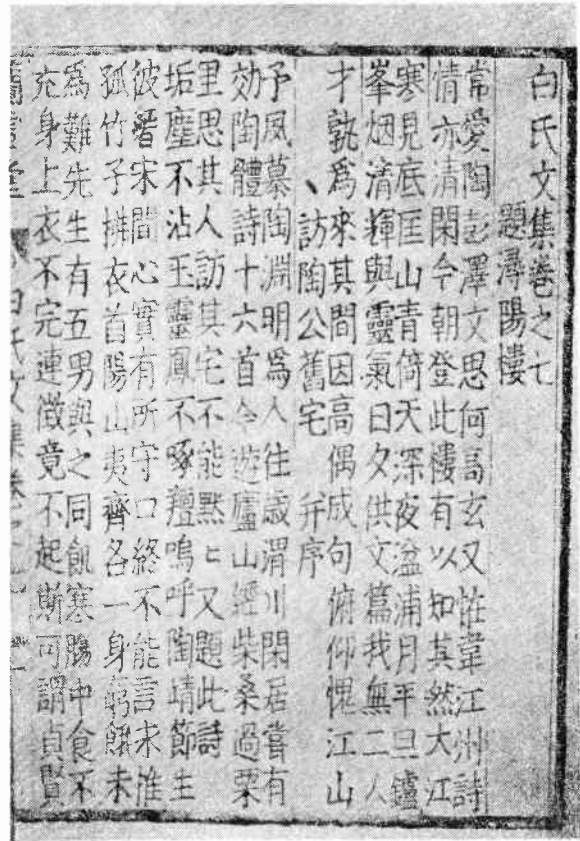 白氏文集卷之七
題潯陽樓
常愛陶彭澤文思何高玄又恠韋江州詩
情亦清閑今朝登此樓有以知其然大江
寒見底匡山青倚天深夜湓浦月平旦鑪
峯烟清輝與靈氣日夕供文篇我無二人
才孰爲來其間因高偶成句俯仰愧江山
丶訪陶公舊宅 并序
予夙慕陶淵明爲人往歲渭川閑居嘗有
効陶體詩十六首今遊廬山經柴桑過栗
里思其人訪其宅不能黙〻又題此詩
垢塵不沾玉靈鳳不啄羶嗚呼陶靖節生
彼晉宋間心實有所守口終不能言永惟
孤竹子拂衣首陽山夷齊各一身窮餓未
爲難先生有五男與之同飢寒腸中食不
充身上衣不完連徵竟不起斯可謂真賢
白氏文集卷